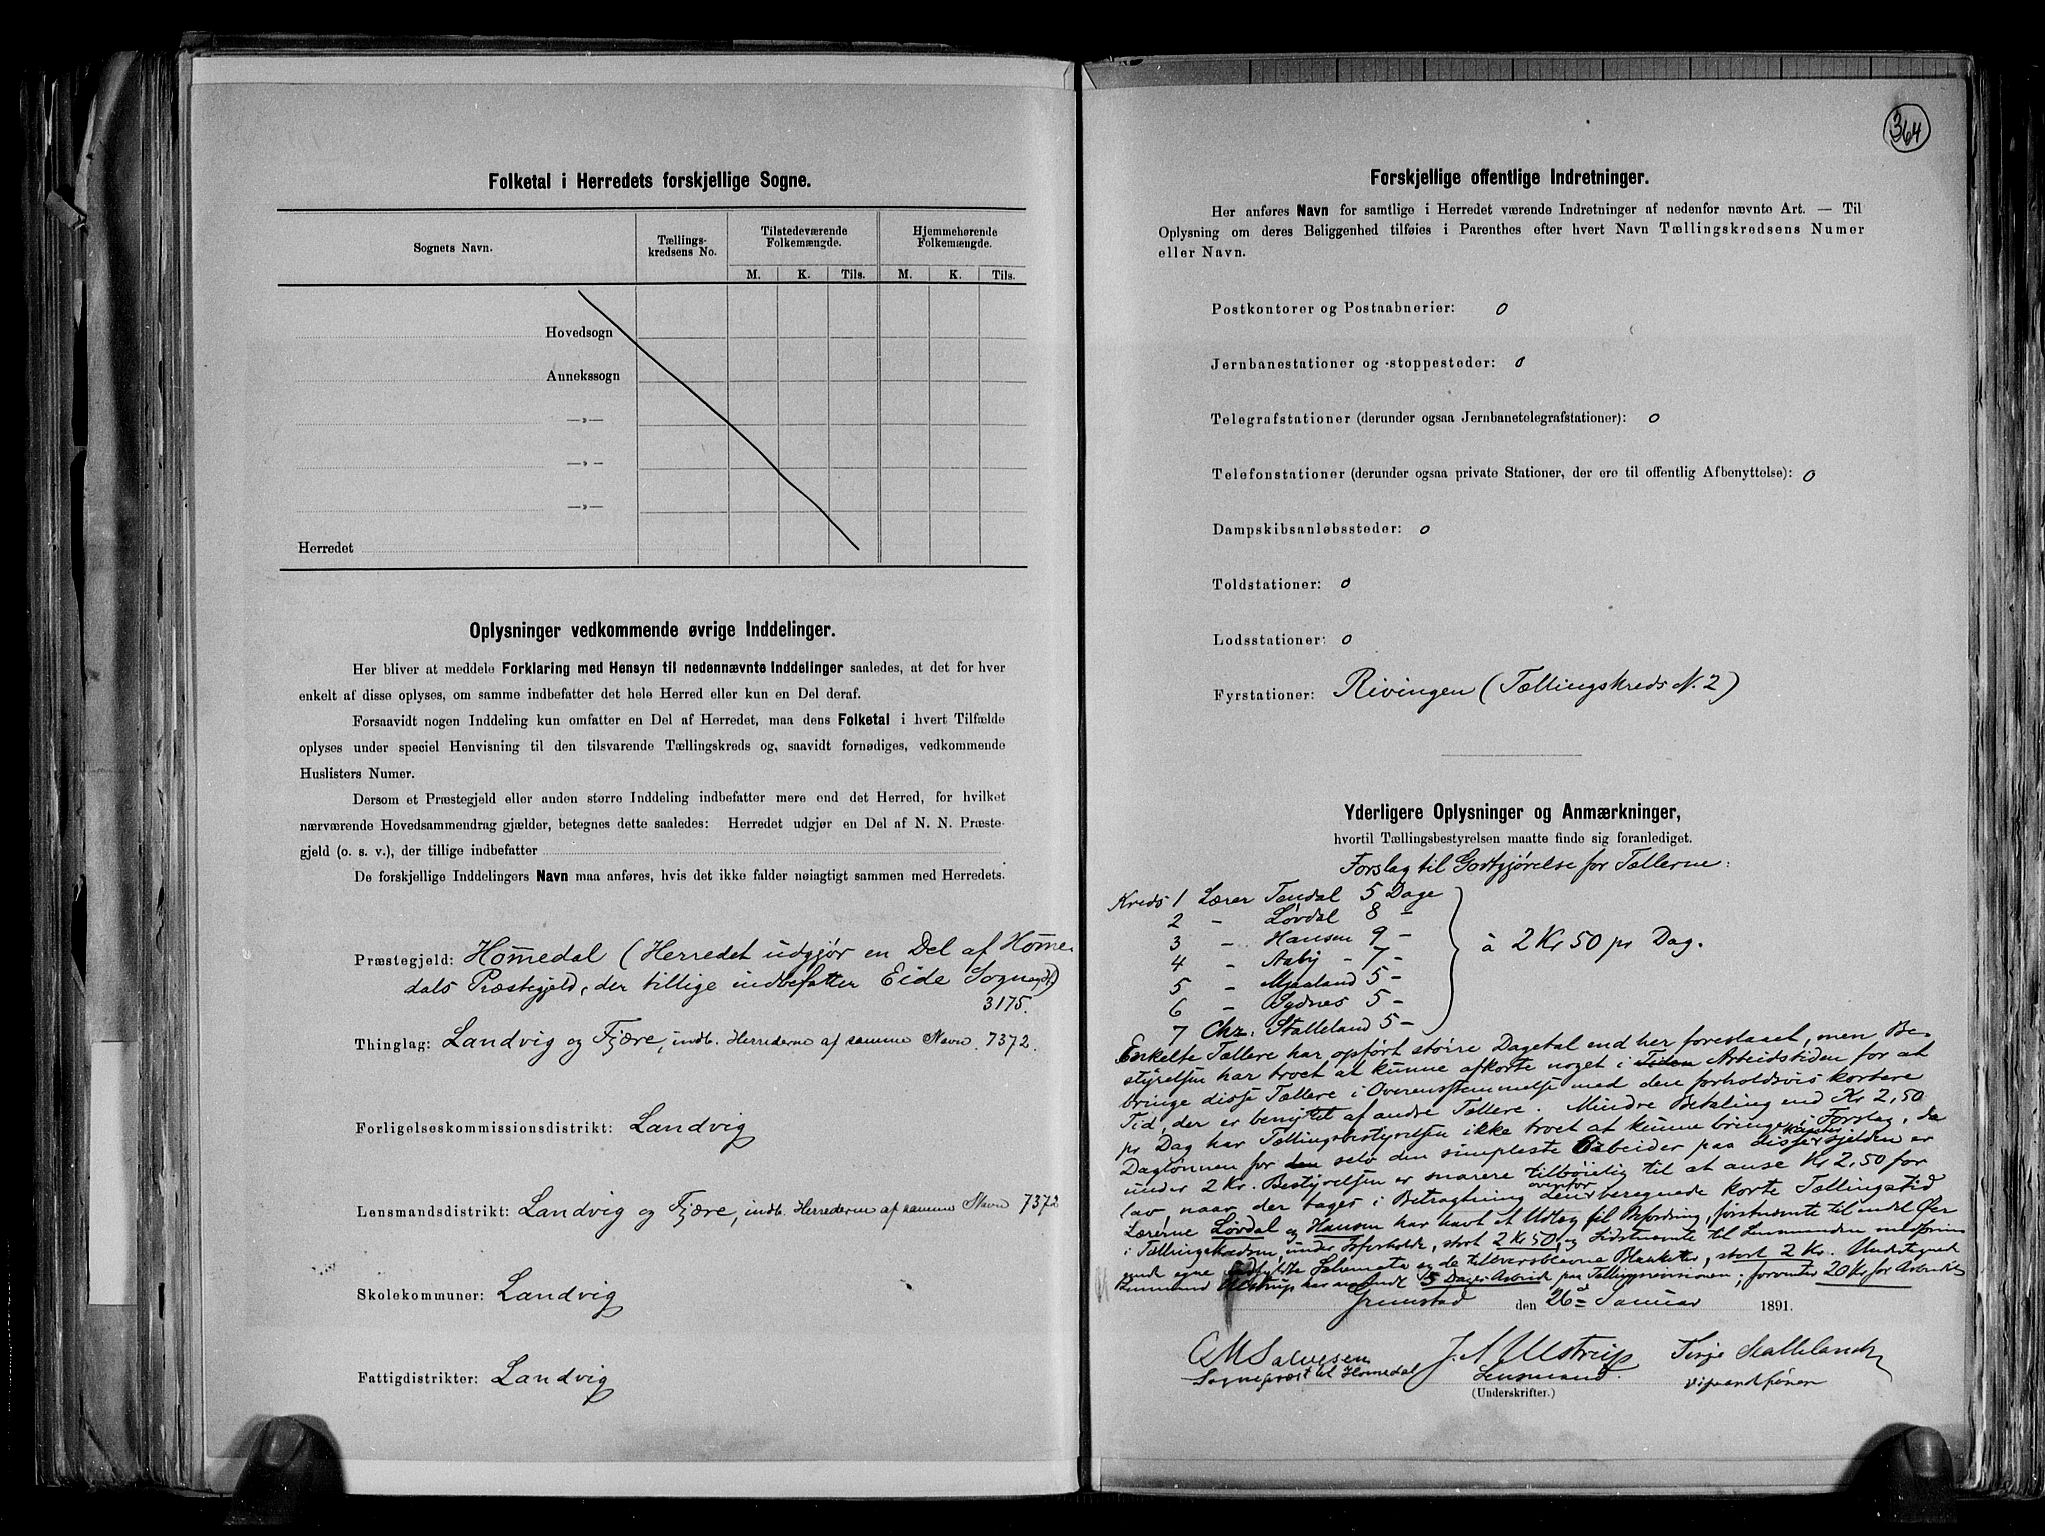 Folketal i Herredets forskjellige Sogne.
Sognets Navn.
Tællings-
kredsens No.
Tilstedeværende
Folkemængde.
Hjemmehørende
Folkemængde.
M. K. Tils. M. K. Tils.
Hovedsogn
Annekssogn
—„—
—„—
—„—
Herredet
Oplysninger vedkommende øvrige Inddelinger.
Her bliver at meddele Forklaring med Hensyn til nedennævnte Inddelinger saaledes, at det for hver
enkelt af disse oplyses, om samme indbefatter det hele Herred eller kun en Del deraf.
Forsaavidt nogen Inddeling kun omfatter en Del af Herredet, maa dens Folketal i hvert Tilfælde
oplyses under speciel Henvisning til den tilsvarende Tællingskreds og, saavidt fornødiges, vedkommende
Huslisters Numer.
Dersom et Præstegjeld eller anden større Inddeling indbefatter mere end det Herred, for hvilket
nærværende Hovedsammendrag gjælder, betegnes dette saaledes: Herredet udgjør en Del af N. N. Præste-
gjeld (o. s. v.), der tillige indbefatter
De forskjellige Inddelingers Navn maa anføres, hvis det ikke falder nøiagtigt sammen med Herredets.
Præstegjeld: Homedal (Herredet udgjør en Del af Home-
dals Præstegjeld, der tillige indbefatter Eide Sogn
3175.
Thinglag: Landvig og Fjære, indb. Herrederne af samme Navn. 7372.
Forligelseskommissionsdistrikt: Landvig
Lensmandsdistrikt: Landvig og Fjære, indb. Herrederne af samme Navn 7372
Skolekommuner: Landvig
Fattigdistrikter: Landvig
364
Forskjellige offentlige Indretninger.
Her anføres Navn for samtlige i Herredet værende Indretninger af nedenfor nævnte Art. — Til
Oplysning om deres Beliggenhed tilføies i Parenthes efter hvert Navn Tællingskredsens Numer
eller Navn.
Postkontorer og Postaabnerier: 0
Jernbanestationer og -stoppesteder: 0
Telegrafstationer (derunder ogsaa Jernbanetelegrafstationer): 0
Telefonstationer (derunder ogsaa private Stationer, der ere til offentlig Afbenyttelse): 0
Dampskibsanløbssteder: 0
Toldstationer: 0
Lodsstationer: 0
Fyrstationer: Rivingen (Tællingskreds N. 2)
Yderligere Oplysninger og Anmærkninger,
hvortil Tællingsbestyrelsen maatte finde sig foranlediget.
Forslag til Godtgjørelse for Tællerne:
Kreds 1 Lærer Tendal 5 Dage
2 - Løvdal 8 -
3 - Hansen 9 -
4 - Aaby - 7 -
à 2 Kr 50 pr Dag.
5 - Mjaaland 5 -
6 - Sydnes 5 -
7 Chr. Stalleland 5 -
Enkelte Tællere har opført større Dagetal end her foreslaaet, men Be-
styrelsen har troet at kunne afkorte noget i Tiden Arbeidstiden for at
bringe disse Tællere i Overensstemmelse med den forholdsvis kortere
Tid, der er benyttet af andre Tællere. Mindre Betaling end Kr 2,50
pr Dag har Tællingsbestyrelsen ikke troet at kunne bringe i Forslag, da
Daglønnen for den selv den simpleste Arbeider paa disse Kanter sjelden er
under 2 Kr. Bestyrelsen er snarere tilbøielig til at anse Kr 2,50 for
lav naar der tages i Betragtning den ovenfor beregnede korte Tællingstid
Lærerne Løvdal og Hansen har havt et Udlæg til Befordring, førstnævnte til endel Øer
i Tællingskredsen, under Isforholde, stort 2 Kr 50, og sidstnævnte til Lensmanden
egne udfyldte Schemata og de tiloversblevne Blanketter, stort 2 Kr.
Lensmand Ulstrup har anvendt 5 Dages Arbeide paa Tællingsrevisionen, forventer 20 Kr for Arbeidet
Grimstad den 26de Januar 1891.
O M Salvesen J. N. Ulstrup Terje Stalleland
Sognepræst til Homedal Lensmand.
(Underskrifter.)